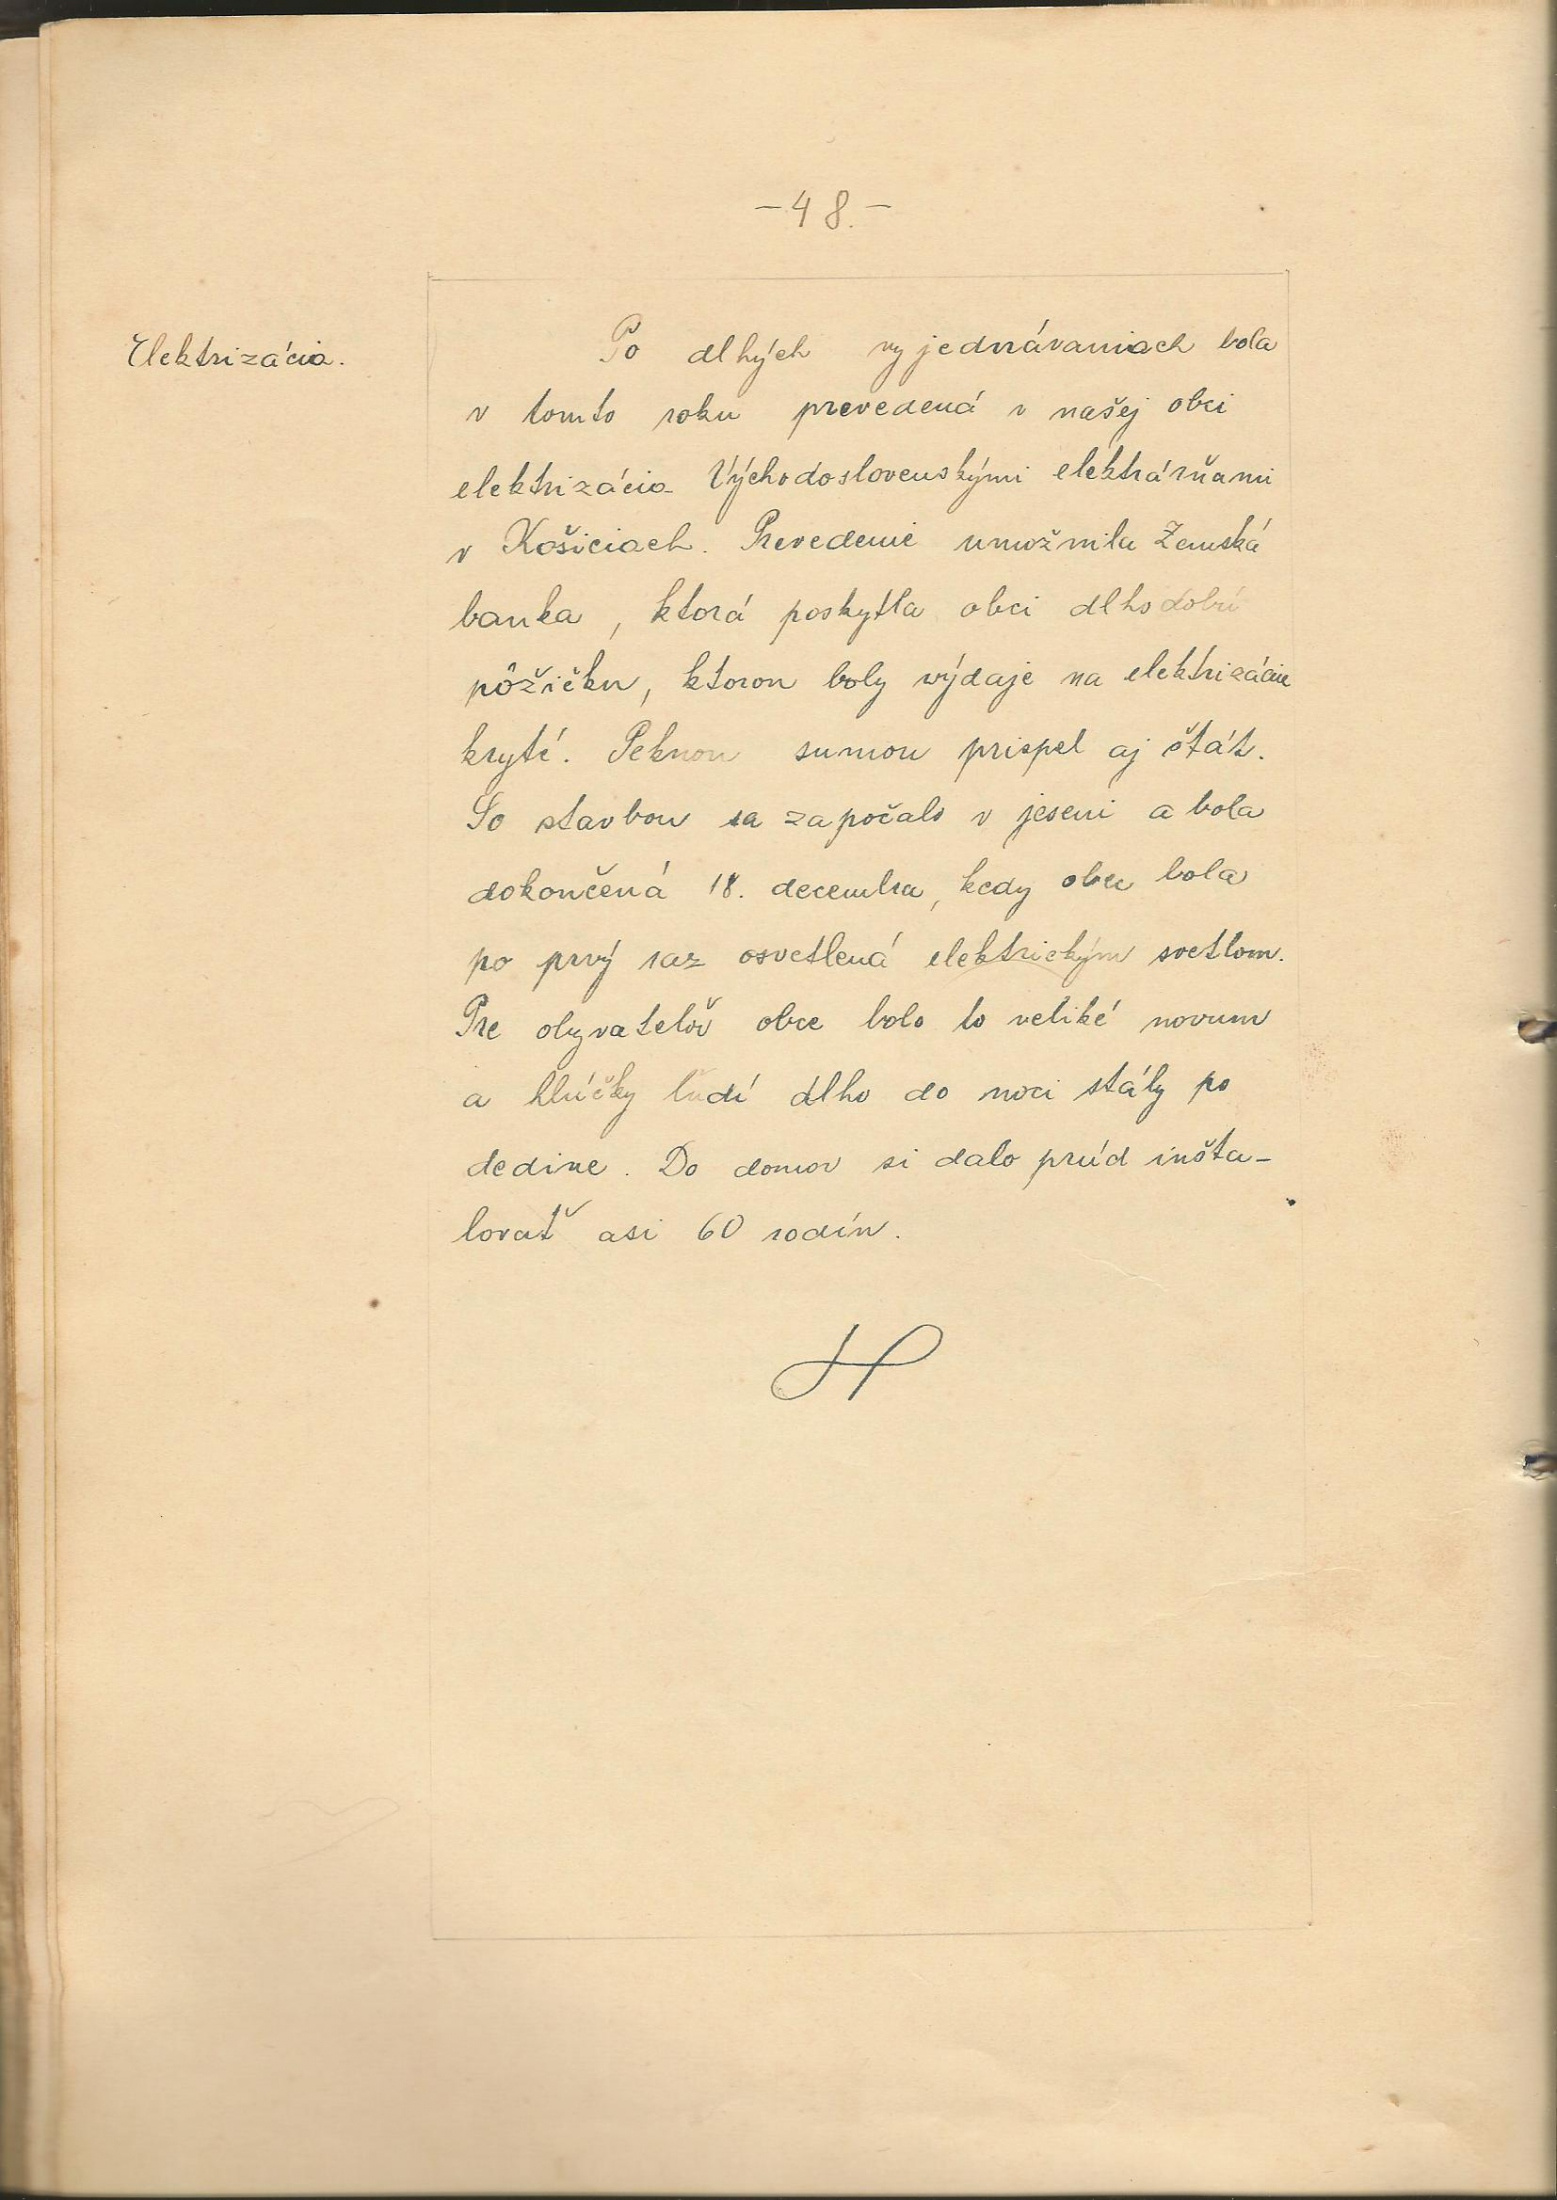 -48.-
Elektrizácia.
Po dlhých vyjednávaniach bola
v tomto roku prevedená v našej obci
elektrizácia Východoslovenskými elektrárňami
v Košiciach. Prevedenie umožnila Zemská
banka, ktorá poskytla obci dlhodobú
pôžičku, ktorou boly výdaje na elektrizáciu
kryté. Peknou sumou prispel aj štát.
So stavbou sa započalo v jeseni a bola
dokončená 18. decembra, kedy obec bola
po prvý raz osvetlená elektrickým svetlom.
Pre obyvateľov obce bolo to veliké novum
a hlúčky ľudí dlho do noci stály po
dedine. Do domov si dalo prúd inšta-
lovať asi 60 rodín.